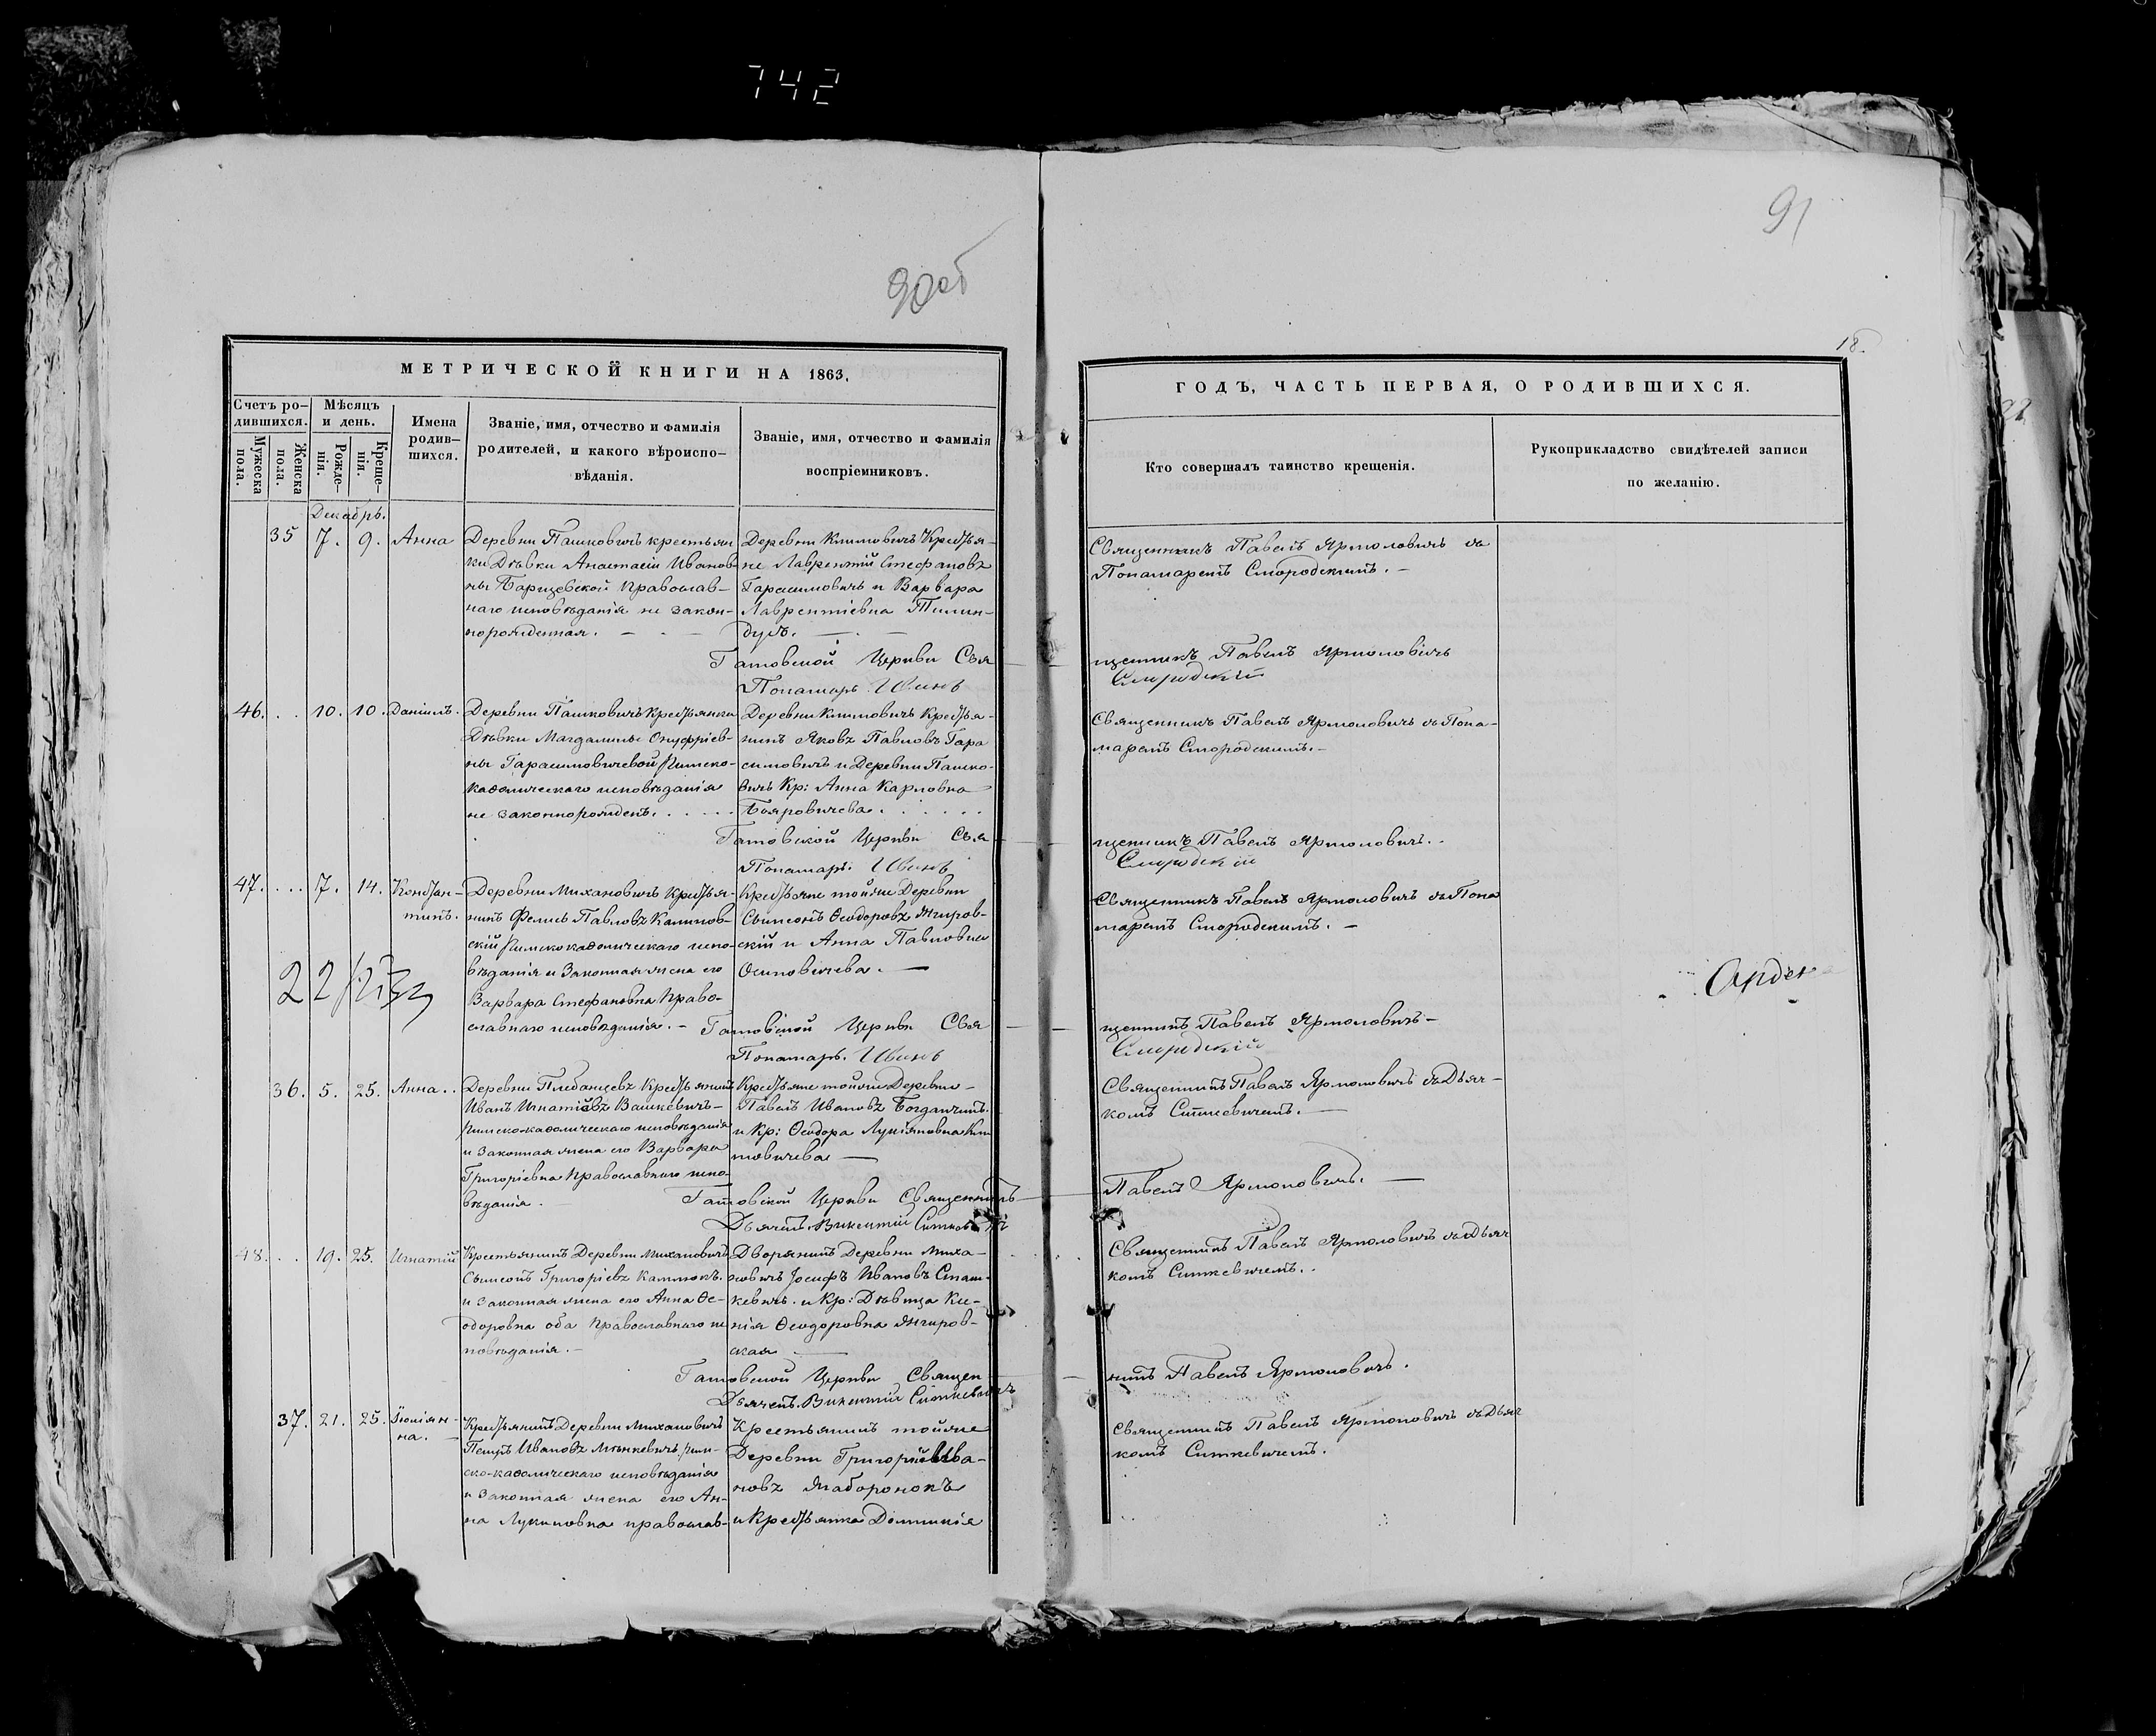 742
91
90об
18.
МЕТРИЧЕСКОЙ КНИГИ НА 1863,
ГОДЪ, ЧАСТЬ ПЕРВАЯ, О РОДИВШИХСЯ.
Счетъ ро–
дившихся.
Мужеска
пола.
Женска
пола.
Мѣсяцъ
и день.
Рожде–
нія.
Креще–
нія.
Имена
родив–
шихся.
Званіе, имя, отчество и фамилія
родителей, и какого вѣроиспо–
вѣданія.
Званіе, имя, отчество и фамилія
воспріемниковъ.
Кто совершалъ таинство крещенія.
Рукоприкладство свидѣтелей записи
по желанію.
Декабрь.
35 7. 9. Анна
Деревни Пашковичъ крестьян
ки Дѣвки Анастасіи Иванов-
ны Барщевской Православ-
наго исповѣданія не закон-
норожденная.
Деревни Климовичъ Крестья-
не Лаврентій Стефановъ
Гарасимовичъ и Варвара
Лаврентіевна Тилин-
дусъ.
Священникъ Павелъ Ярмоловичъ съ
Понамаремъ Смородскимъ.
Гатовской Церкви Свя
щенникъ Павелъ Ярмоловичъ
Пономарь Иванъ
Смородскій
46. 10. 10. Даніилъ.
Деревни Пашковичъ Крестьянки
Дѣвки Магдалины Онуфріев-
ны Гарасимовичевой Римско-
католическаго исповѣданія
не законнорожденъ.
Деревни Климовичъ Крестья-
нинъ Яковъ Павловъ Гара
симовичъ и Деревни Пашко-
вичъ Кр: Анна Карловна
Бояровичева.
Священникъ Павелъ Ярмоловичъ съ Пона-
маремъ Смородскимъ.
Гатовской Церкви Свя
щенникъ Павелъ Ярмоловичъ.
Пономарь Иванъ
Смородскій
47. 7. 14. Констан-
тинъ.
Деревни Михановичъ Крестья-
нинъ Феликъ Павловъ Калинов-
скій Римско католическаго испо-
вѣданія и Законная жена его
Варвара Стефановна Право-
славнаго исповѣданія.
Крестьяне тойже Деревни
Сымеонъ Ѳеодоровъ Жигров-
скій и Анна Павловна
Осиповичева.
Священникъ Павелъ Ярмоловичъ съ Пона
маремъ Смородскимъ.
22
Гатовской Церкви Свя
щенникъ Павелъ Ярмоловичъ
Пономарь. Иванъ
Смородскій
36. 5. 25. Анна.
Деревни Плебанцевъ Крестьянинъ
Иванъ Игнатіевъ Вашкевичъ
Римско-католическаго исповѣданія
и Законная жена его Варвара
Григоріевна Православнаго испо-
вѣданія.
Крестьяне тойже Деревни
Павелъ Ивановъ Богданчикъ.
и Кр: Ѳеодора Лукіяновна Кли
мовичева
Священникъ Павелъ Ярмоловичъ съ Дьяч-
комъ Ситкевичемъ.
Гатовской Церкви Священникъ
Павелъ Ярмоловичъ.
Дьячекъ Викентій
48. 19. 25. Игнатій
Крестьянинъ Деревни Михановичъ
Сымеонъ Григоріевъ Каллюкъ.
и Законная жена его Анна Ѳе-
одоровна оба Православнаго ис
повѣданія.
Дворянинъ Деревни Миха-
новичъ Іосифъ Ивановъ Сташ-
кевичъ. и Кр: Дѣвица Ксе-
нія Ѳеодоровна Жигров-
ская
Священникъ Павелъ Ярмоловичъ съ Дьяч
комъ Ситкевичемъ.
Гатовской Церкви Священ
никъ Павелъ Ярмоловичъ.
Дьячекъ Викентій Ситкевичъ
37. 21. 25. Іюліян-
на.
Крестьянинъ Деревни Михановичъ
Петръ Ивановъ Мѣнкевичъ, рим-
ско-католическаго исповѣданія
и Законная жена его Ан-
на Лукиновна православ-
Крестьянинъ тойже
Деревни Григорій Ива-
новъ Жаборонокъ
и Крестьянка Доминикія
Священникъ Павелъ Ярмоловичъ съ Дьяч
комъ Ситкевичемъ.